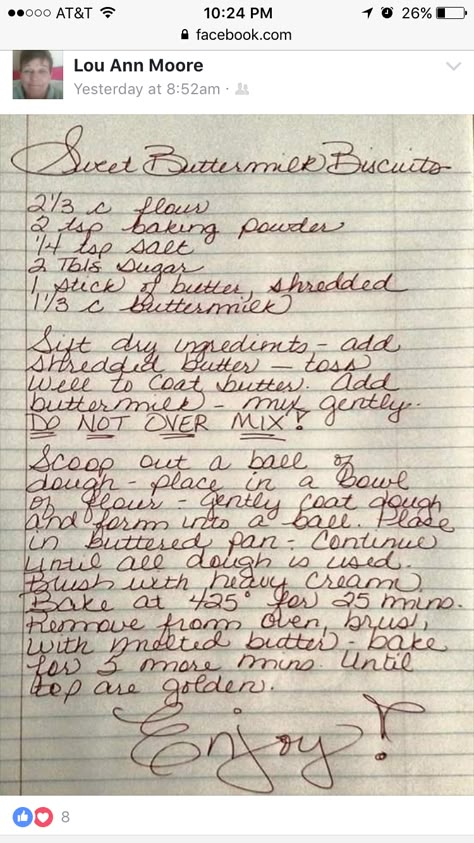 AT&T 10:24 PM 26%
facebook.com
Lou Ann Moore
Yesterday at 8:52am ·
Sweet Buttermilk Biscuits
2 1/3 c flour
2 tsp baking powder
1/4 tsp salt
2 Tbls sugar
1 stick of butter, shredded
1 1/3 c buttermilk
Sift dry ingredients - add
shredded butter - toss
well to coat butter. Add
buttermilk - mix gently.
DO NOT OVER MIX!
Scoop out a ball of
dough - place in a bowl
of flour - gently coat dough
and form into a ball. Place
in buttered pan - Continue
until all dough is used.
Brush with heavy cream
Bake at 425° for 25 mins.
Remove from oven, brush
with melted butter - bake
for 5 more mins. Until
top are golden.
Enjoy!
8